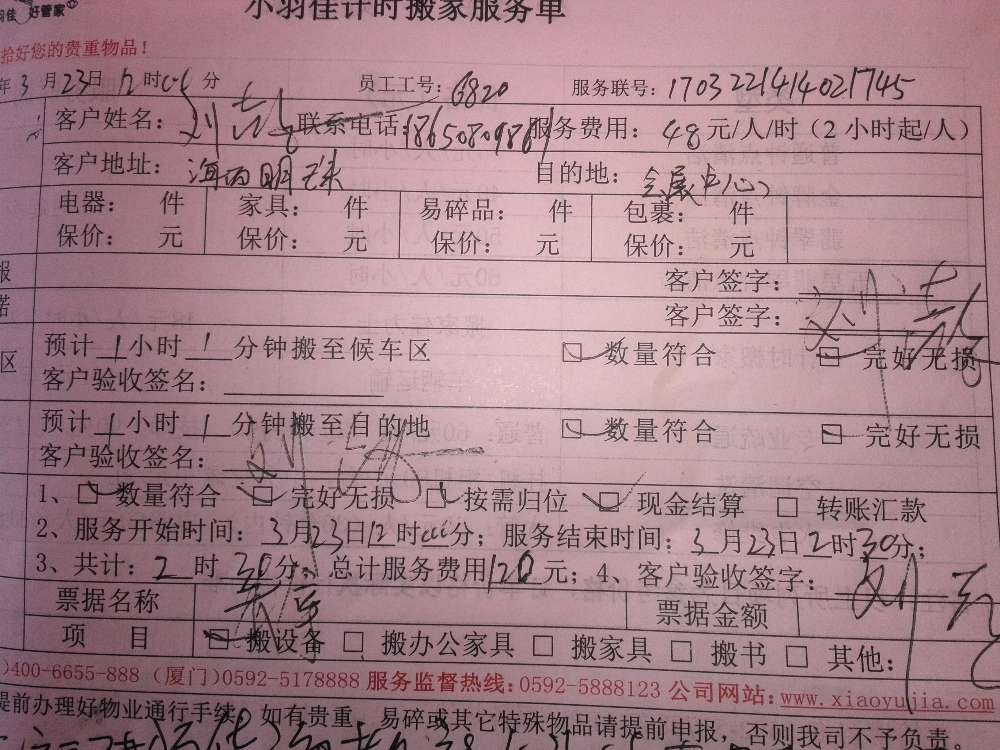 羽佳 好管家
小羽佳计时搬家服务单
拾好您的贵重物品！
年3月23日12时00分 员工工号：6820 服务联号：1703221414021745
客户姓名：刘 联系电话：18650809889 服务费用：48元/人/时（2小时起/人）
客户地址：海西明珠 目的地：会展中心
电器： 件 家具： 件 易碎品： 件 包裹： 件
保价： 元 保价： 元 保价： 元 保价： 元
客户签字：
客户签字：刘
区 预计1小时1分钟搬至候车区 数量符合 完好无损
客户验收签名：
预计1小时1分钟搬至目的地 数量符合 完好无损
客户验收签名：刘
1、数量符合 完好无损 按需归位 现金结算 转账汇款
2、服务开始时间：3月23日12时00分；服务结束时间：3月23日2时30分；
3、共计：2时30分，总计服务费用120元；4、客户验收签字：刘
票据名称 票据金额
项 目 搬设备 搬办公家具 搬家具 搬书 其他：
)400-6655-888（厦门)0592-5178888 服务监督热线：0592-5888123 公司网站：www.xiaoyujia.com
提前办理好物业通行手续，如有贵重、易碎或其它特殊物品请提前申报，否则我司不予负责。